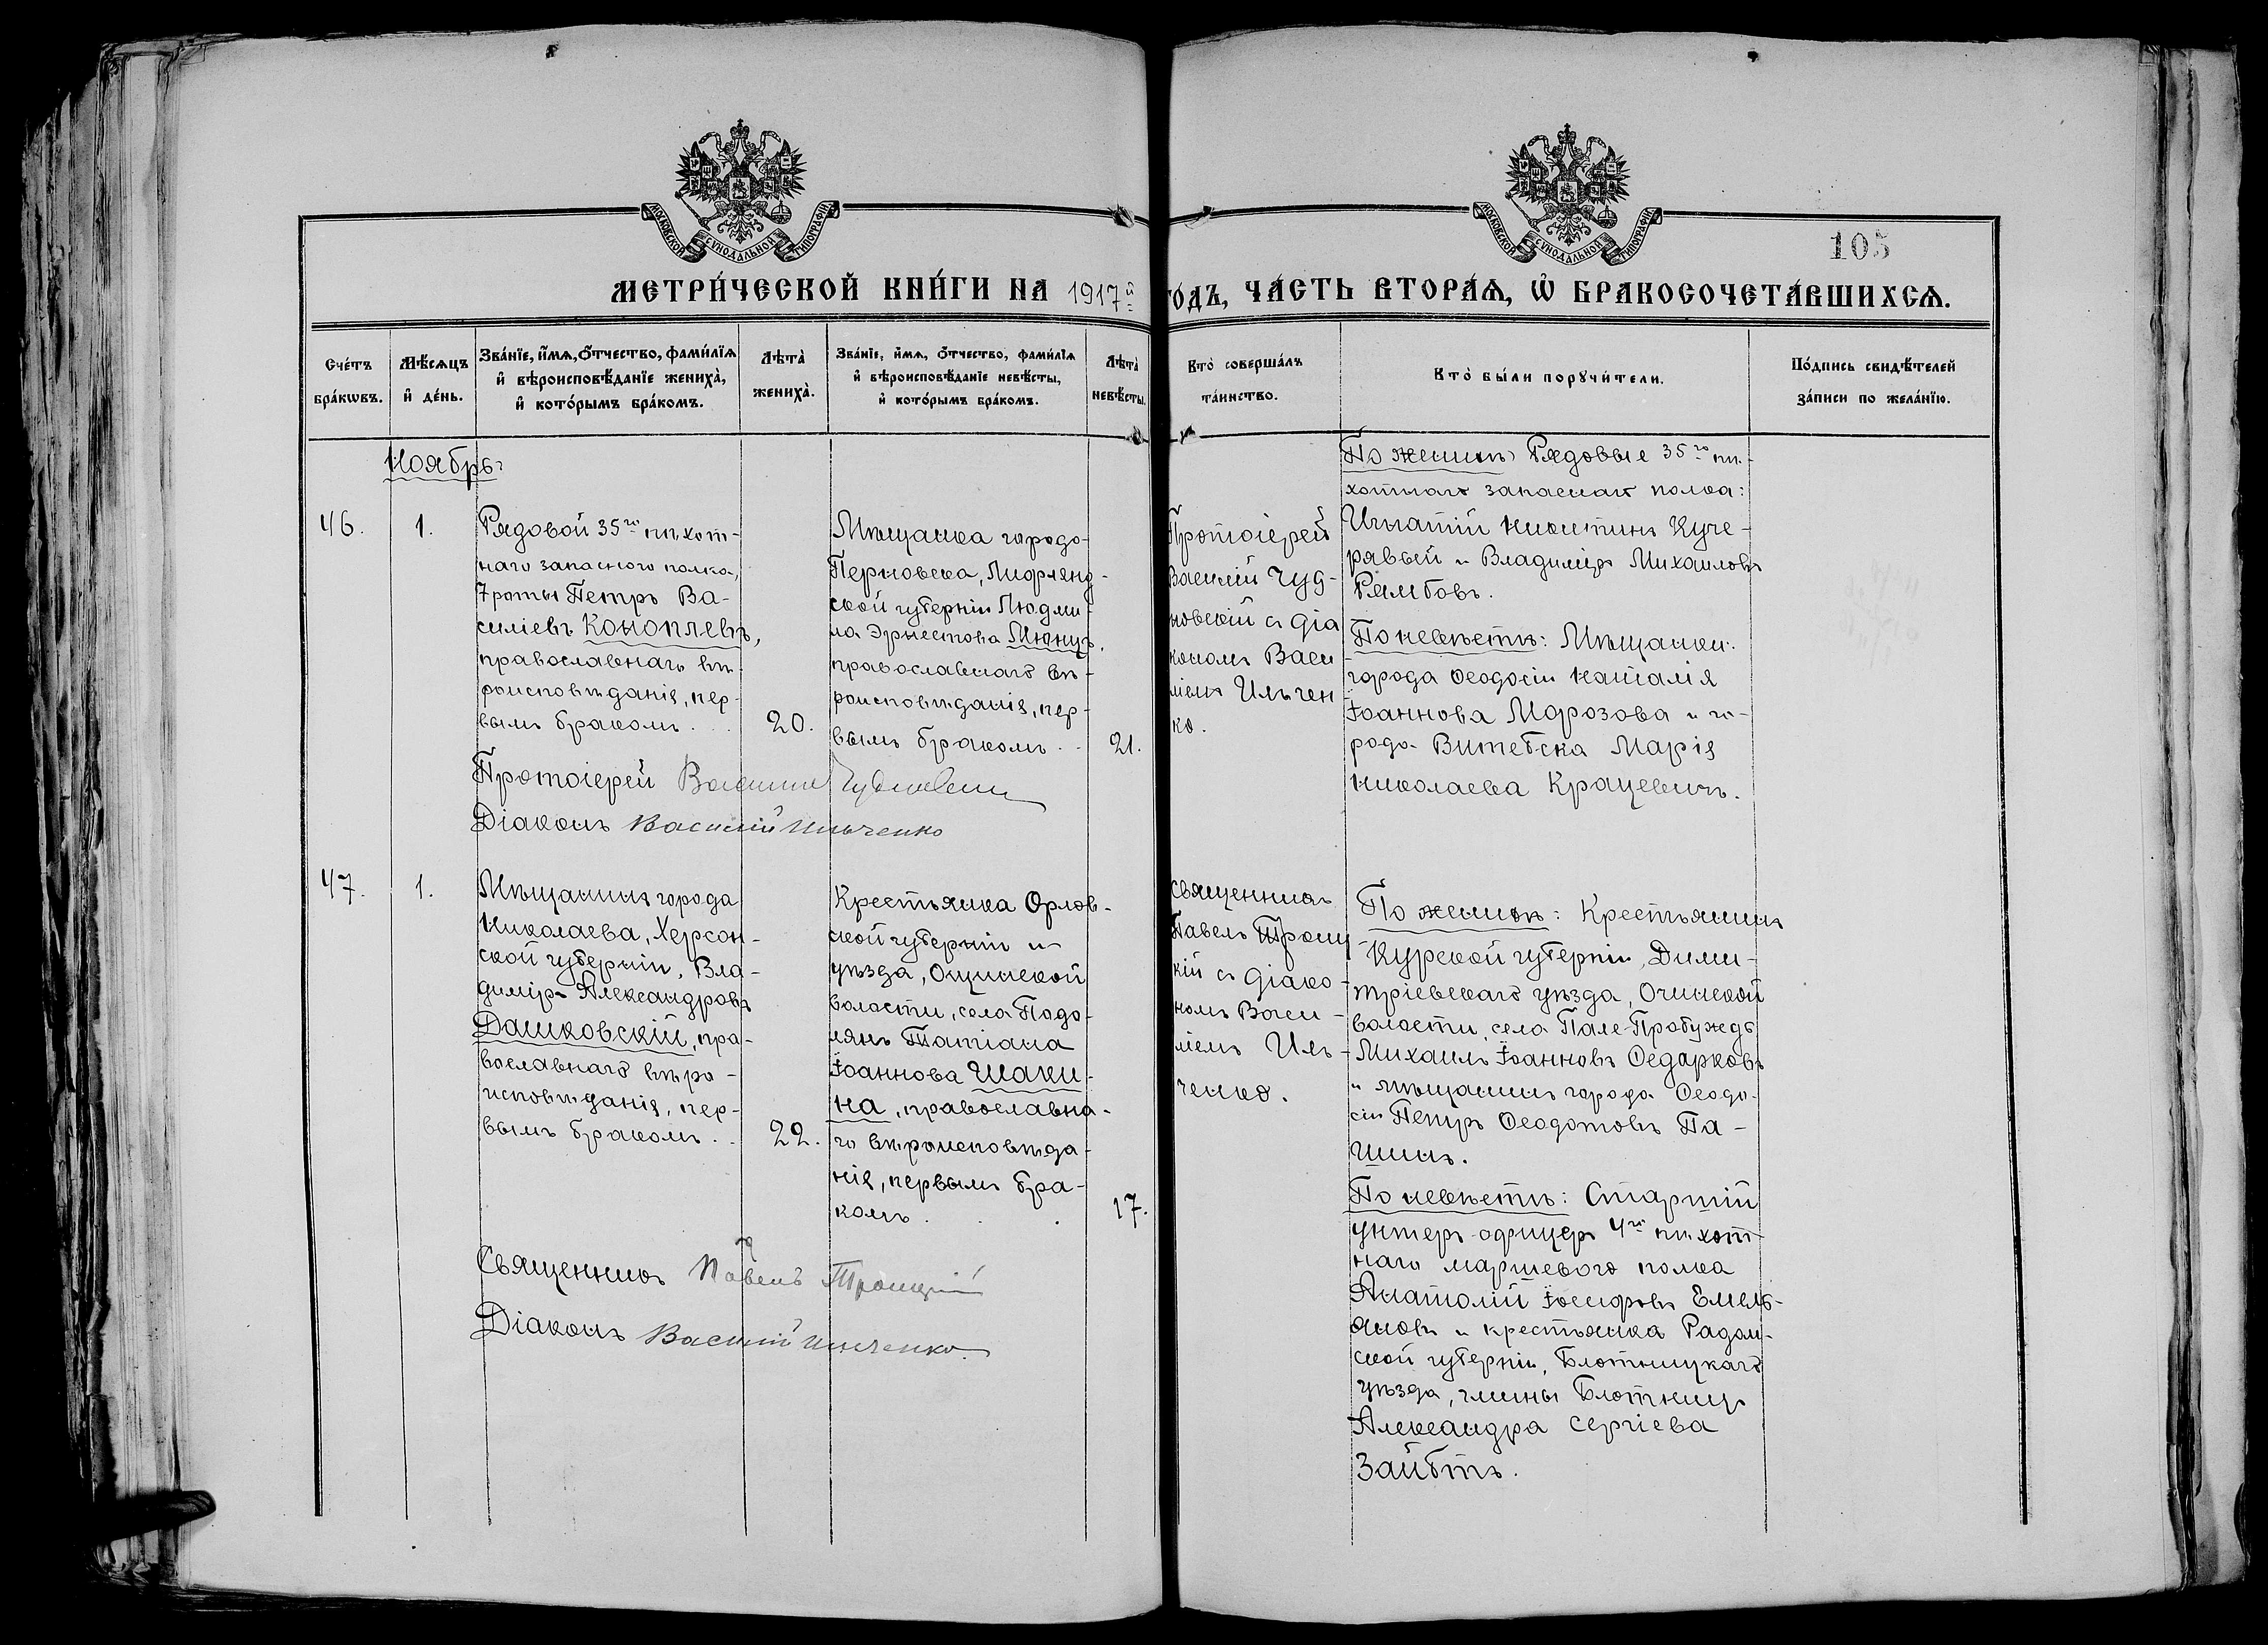 МОСКОВСКОЙ СѴНОДАЛЬНОЙ ТИПОГРАФІИ
МОСКОВСКОЙ СѴНОДАЛЬНОЙ ТИПОГРАФІИ
105
МЕТРИ́ЧЕСКОЙ КНИ́ГИ НА 1917й ГОДЪ, ЧА́СТЬ ВТОРА́Ѧ, Ѡ҆ БРАКОСОЧЕТА́ВШИХСѦ.
Сче́тъ бра́кѡвъ.
Мѣ́сѧцъ и҆ де́нь.
Зва́нїе, и҆́мѧ, ѻ҆́тчество, фами́лїѧ и҆ вѣроисповѣ́данїе жениха̀, и҆ кото́рымъ бра́комъ.
Лѣта̀ жениха̀.
Зва́нїе, и҆́мѧ, ѻ҆́тчество, фами́лїѧ и҆ вѣроисповѣ́данїе невѣ́сты, и҆ кото́рымъ бра́комъ.
Лѣта̀ невѣ́сты.
Кто̀ соверша́лъ та́инство.
Кто̀ бы́ли порꙋчи́тели.
По́дпись свидѣ́телей за́писи по жела́нїю.
Ноябрь
46.
1.
Рядовой 35го пѣхот-
наго запасного полка,
7 роты Петръ Ва-
силіевъ Коноплевъ,
православнаго вѣ-
роисповѣданія, пер-
вымъ бракомъ. . .
20.
Мѣщанка города
Перновска, Лифлянд-
ской губерніи Людми-
ла Эрнестова Мюнцъ,
православнаго вѣ-
роисповѣданія, пер-
вымъ бракомъ. .
21.
Протоіерей
Василій Чуд-
новскій съ діа
кономъ Васи
ліемъ Ильчен
ко.
По женихѣ Рядовые 35го пѣ-
хотнаго запаснаго полка:
Игнатій Никитинъ Куче-
рявый и Владиміръ Михаиловъ
Рямбовъ.
По невѣстѣ: Мѣщанки:
города Ѳеодосіи Наталія
Іоаннова Морозова и го-
рода Витебска Марія
Николаева Крацевичъ.
Протоіерей Василий Чудновский
Діаконъ Василий Ильченко
47.
1.
Мѣщанинъ города
Николаева, Херсон-
ской губерніи, Вла-
диміръ Александровъ
Дашковскій, пра-
вославнаго вѣро-
исповѣданія, пер-
вымъ бракомъ. .
22.
Крестьянка Орлов-
ской губерніи и
уѣзда,
волости, села Подо-
лянъ Татіана
Іоаннова Шаки-
на, православна-
го вѣроисповѣда-
нія, первымъ бра-
комъ. . .
17.
Священникъ
Павелъ Троиц-
кій съ діако-
номъ Васи-
ліемъ Иль-
ченко.
По женихѣ: Крестьянинъ
Курской губерніи, Дими-
тріевскаго уѣзда,
волости, села
Михаилъ Іоанновъ Ѳедарковъ
и мѣщанинъ города Ѳеодо-
сіи Петръ Ѳеодотовъ Па-
шинъ.
По невѣстѣ: Старшій
унтеръ-офицеръ 4го пѣхот-
наго маршевого полка
Анатолій Іосифовъ Емель-
яновъ и крестьянка Радом-
ской губерніи, Блотницкаго
уѣзда, гмины Блотницъ
Александра Сергіева
Зайбтъ.
Священникъ Павелъ Троицкій
Діаконъ Василий Ильченко